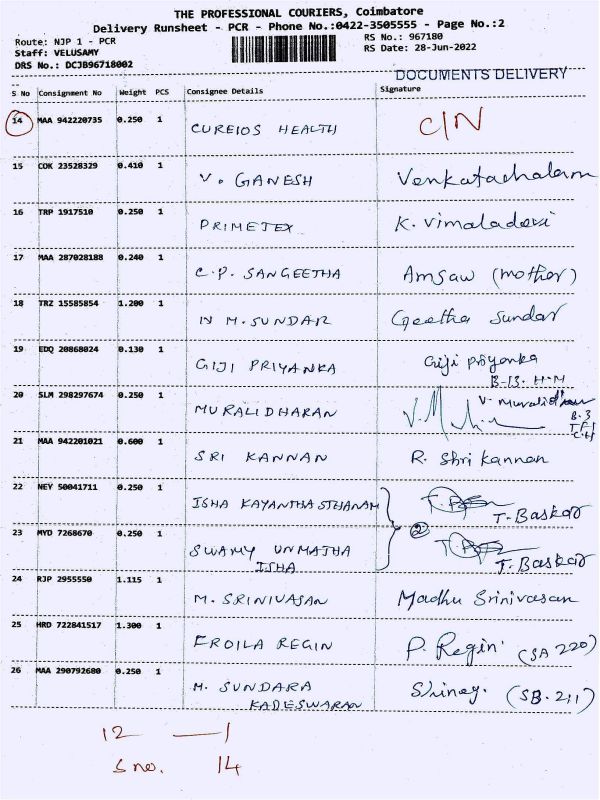 THE PROFESSIONAL COURIERS, Coimbatore
Delivery Runsheet - PCR - Phone No.:0422-3505555 - Page No.:2
Route: NJP 1 - PCR
RS No.: 967180
Staff: VELUSAMY
RS Date: 28-Jun-2022
DRS No.: DCJB96718002
DOCUMENTS DELIVERY
S No Consignment No Weight PCS Consignee Details Signature
14 MAA 942220735 0.250 1 CUREIOS HEALTH C/N
15 COK 23528329 0.410 1 V. GANESH Venkatachalam
16 TRP 1917510 0.250 1 PRIMETEX K. Vimaladevi
17 MAA 287028188 0.240 1 C.P. SANGEETHA Amsaw (mother)
18 TRZ 15585854 1.200 1 N M. SUNDAR Geetha Sundar
19 EDQ 20868024 0.130 1 GIJI PRIYANKA Giji Priyanka
B-13. H-M
20 SLM 298297674 0.250 1 MURALIDHARAN V. Muralidharan
B-3
21 MAA 942201021 0.600 1 SRI KANNAN R. Shri Kannan
22 NEY 50041711 0.250 1 ISHA KAYANTHASTHANAM T. Baskar
2
23 MYD 7268670 0.250 1 SWAMY UNMATHA T. Baskar
ISHA
24 RJP 2955550 1.115 1 M. SRINIVASAN Madhu Srinivasan
25 HRD 722841517 1.300 1 FROILA REGIN P. Regin. (SA 220)
26 MAA 290792680 0.250 1 M. SUNDARA (SB. 211)
KADESWARAN
12 — 1
S no. 14